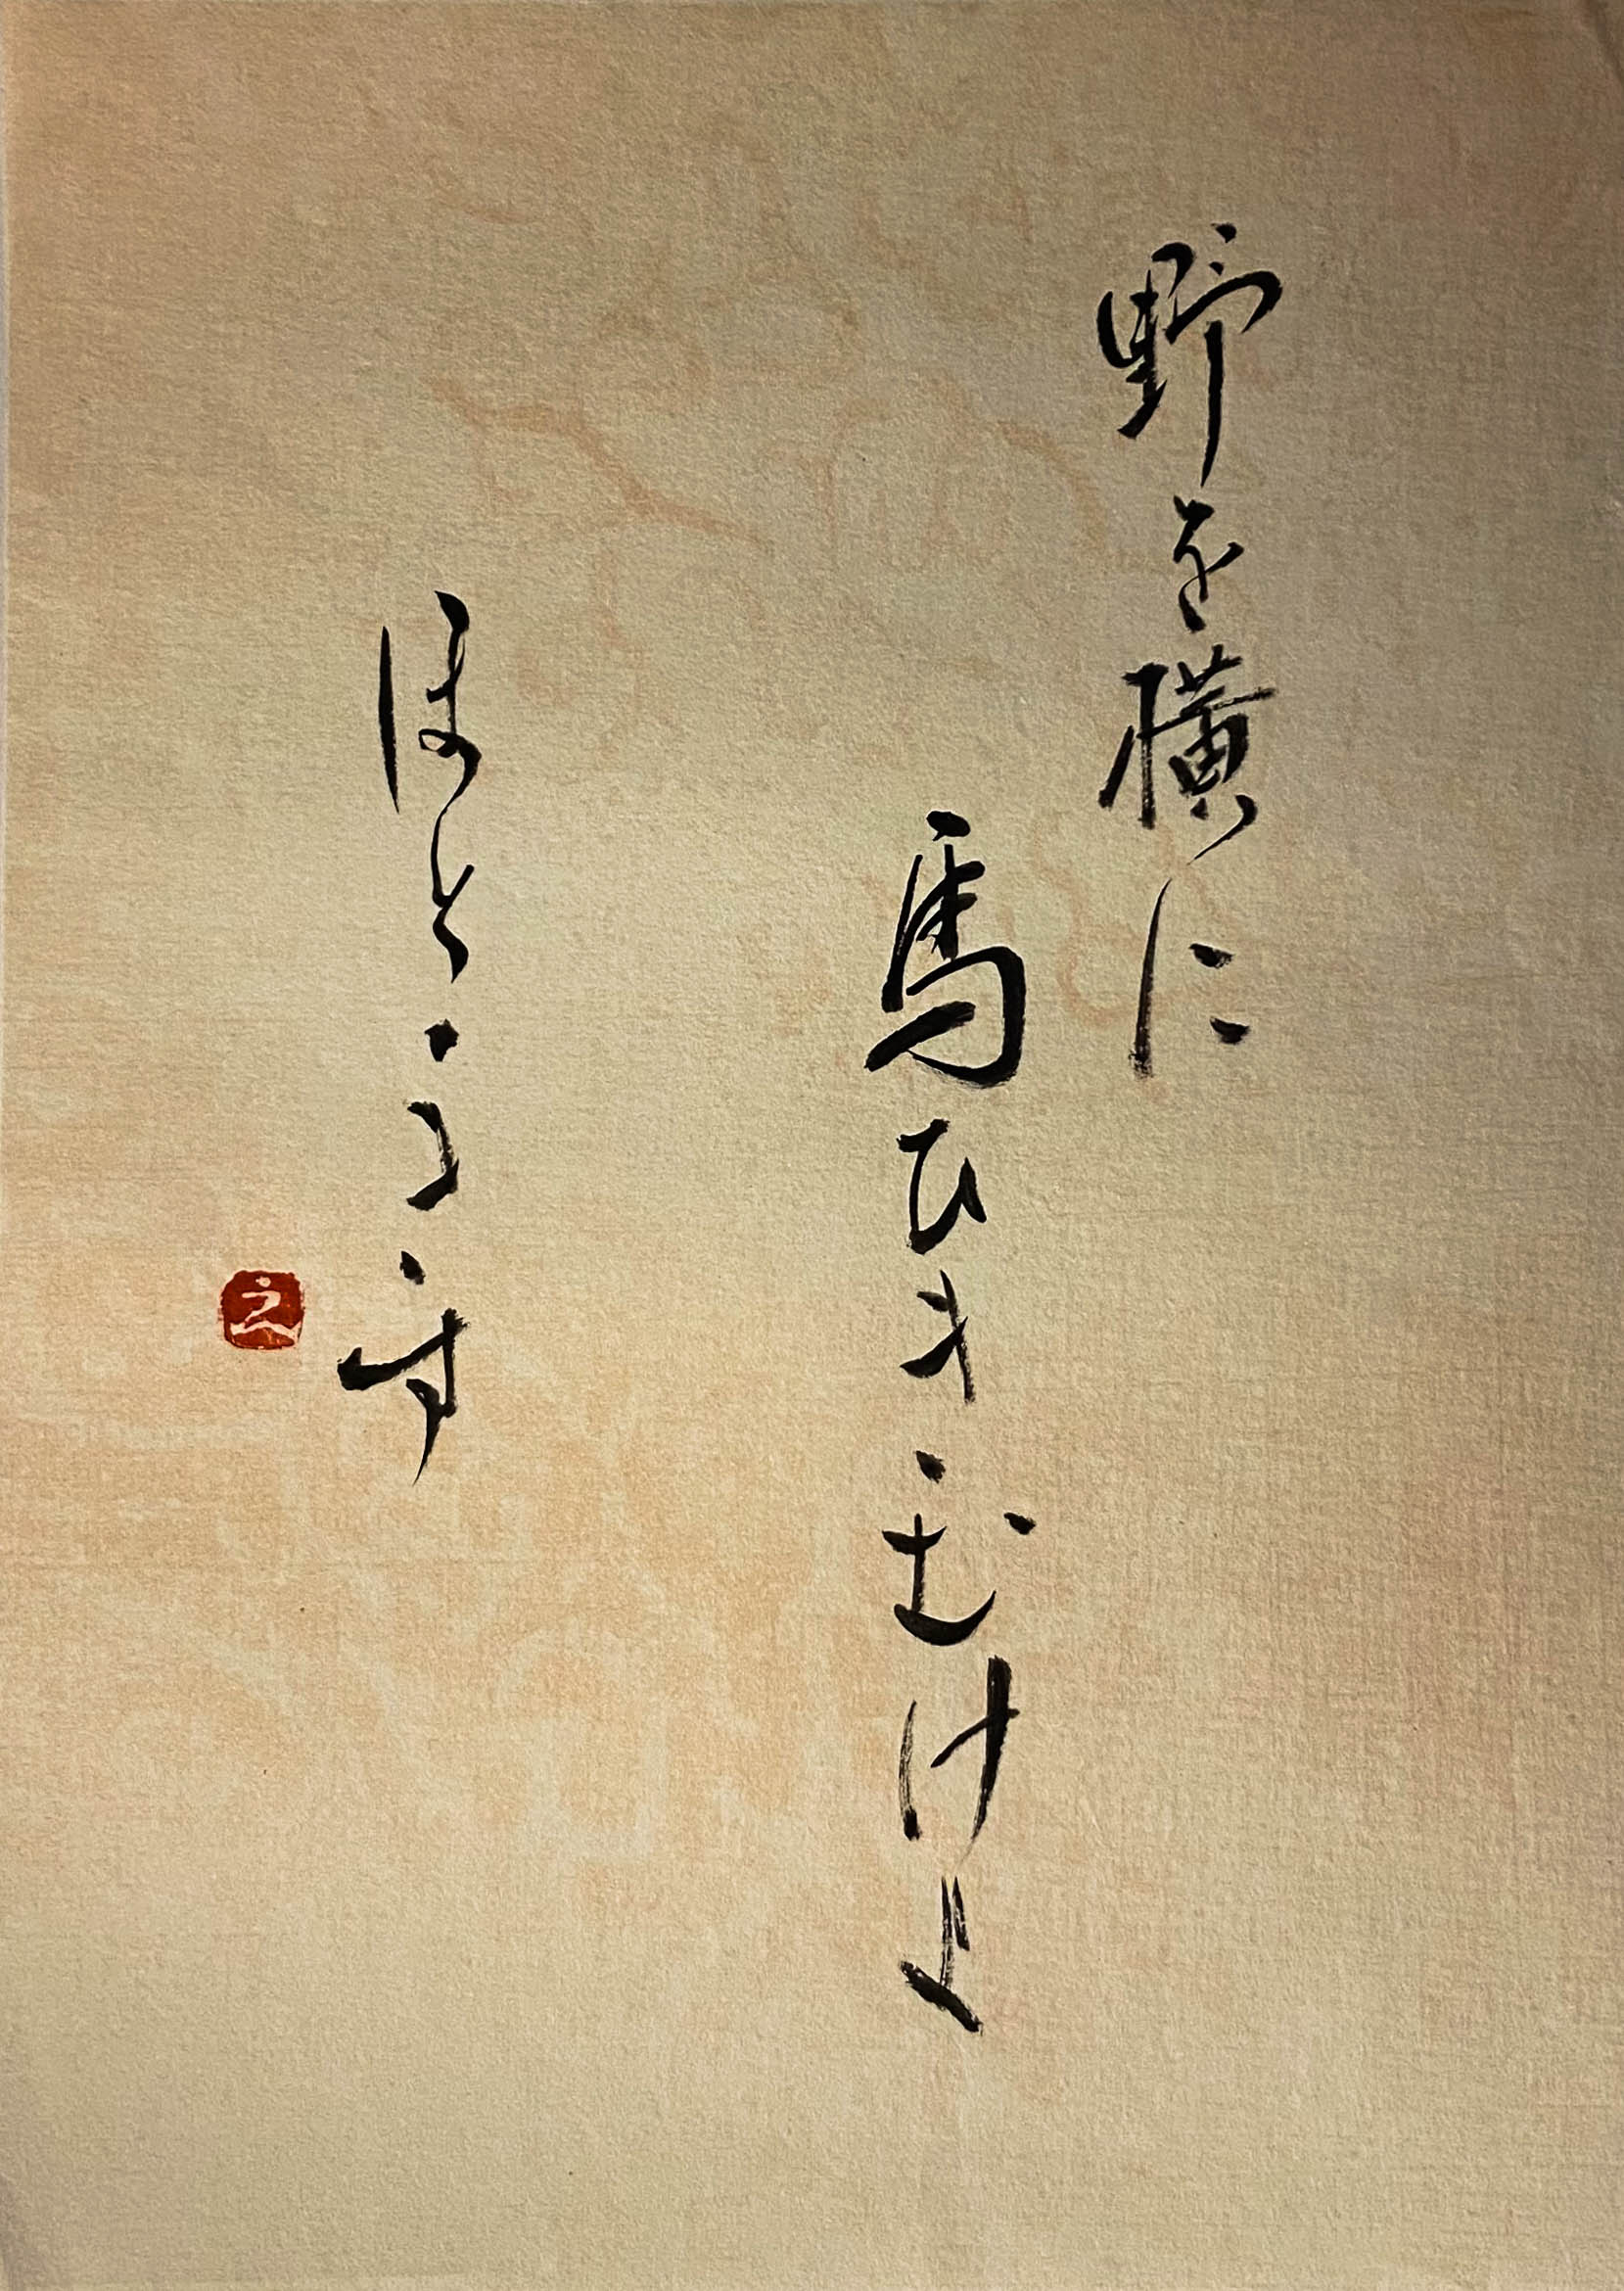 野を横に
馬ひきむけよ
ほとゝきす
之